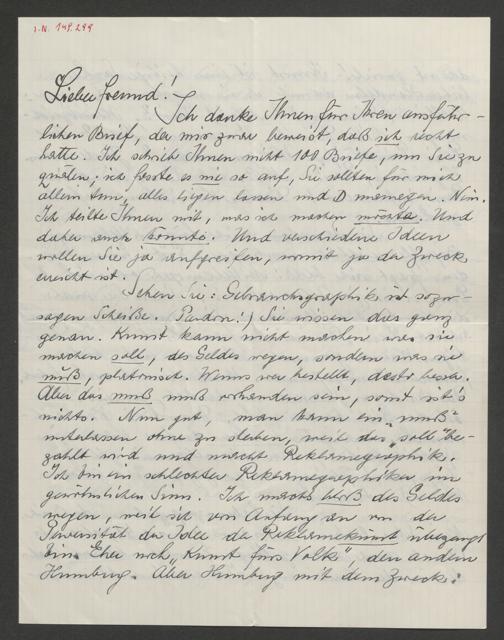 I.N. 149.299
Lieber Freund!
Ich danke Ihnen für Ihren ausführ-
lichen Brief, der mir zwar beweist, daß ich recht
hatte. Ich schrieb Ihnen nicht 100 Briefe, um Sie zu
quälen; ich fasste es nie so auf, Sie sollten für mich
allein tun, alles liegen lassen und D managen. Nein.
Ich teilte Ihnen mit, was ich machen möchte. Und
daher auch könnte. Und verschiedene Ideen
wollen Sie ja aufgreifen, womit ja der Zweck
erreicht ist.
Sehen Sie: Gebrauchsgraphik ist sozu-
sagen Scheiße. Pardon!) Sie wissen dies ganz
genau. Kunst kann nicht machen was sie
machen soll, des Geldes wegen, sondern was sie
muß, platonisch. Wenns wer bestellt, desto besser.
Aber das muß muß vorhanden sein, sonst ist's
nichts. Nun gut, man kann ein „muß"
unterlassen ohne zu sterben, weil das „soll" be-
zahlt wird und macht Reklamegraphik.
Ich bin ein schlechter Reklamegraphiker im
gewöhnlichen Sinn. Ich machs bloß des Geldes
wegen, weil ich von Anfang an von der
Perversität der Idee der Reklamekunst überzeugt
bin. Eher noch „Kunst fürs Volk", den andern
Humbug. Aber Humbug mit dem Zweck: